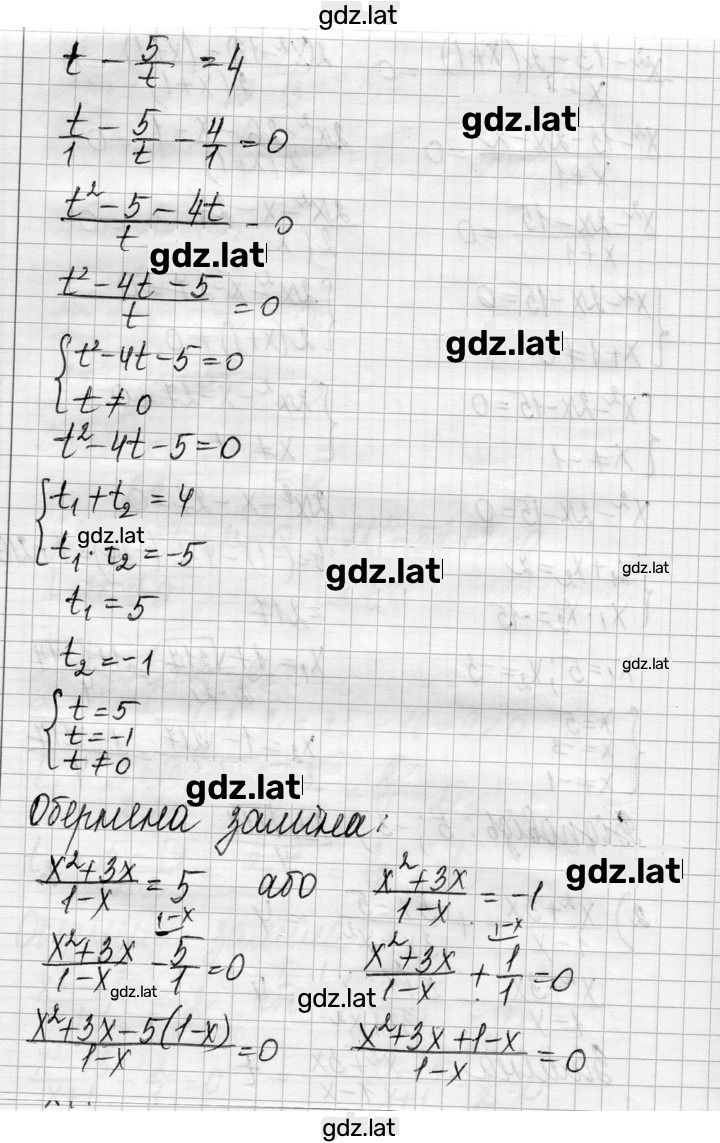 gdz.lat
t - 5/t = 4
gdz.lat
t/1 - 5/t - 4/1 = 0
(t² - 5 - 4t)/t = 0
gdz.lat
(t² - 4t - 5)/t = 0
gdz.lat
{ t² - 4t - 5 = 0
t ≠ 0
t² - 4t - 5 = 0
{ t₁ + t₂ = 4
gdz.lat
t₁ · t₂ = -5
gdz.lat
gdz.lat
t₁ = 5
t₂ = -1
gdz.lat
{ t = 5
t = -1
t ≠ 0
gdz.lat
Обернена заміна:
gdz.lat
(x² + 3x)/(1 - x) = 5 або (x² + 3x)/(1 - x) = -1
(x² + 3x)/(1 - x) - 5/1 (1-x) = 0 (x² + 3x)/(1 - x) + 1/1 (1-x) = 0
gdz.lat
gdz.lat
(x² + 3x - 5(1 - x))/(1 - x) = 0 (x² + 3x + 1 - x)/(1 - x) = 0
gdz.lat